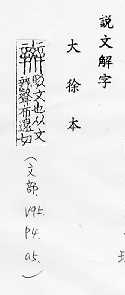 説文解字
大徐本
辬
駁文也从文
辡聲布還切
(文部.
V95.
P4.
a5.)